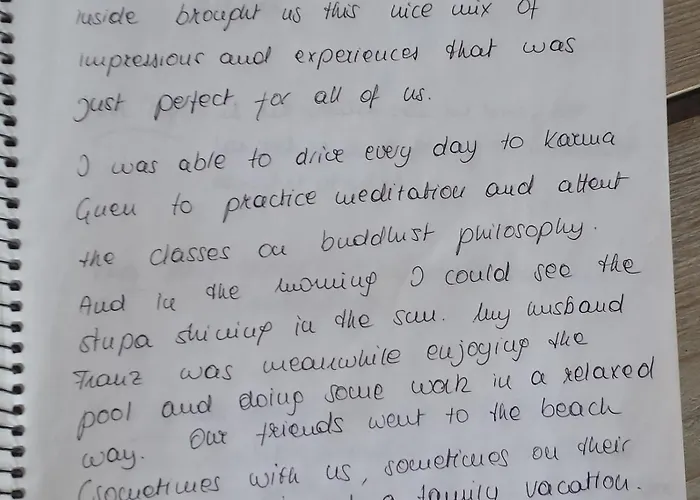 inside brought us this nice mix of
impressions and experiences that was
just perfect for all of us.
I was able to drive every day to Karma
Guen to practice meditation and attent
the classes on buddhist philosophy.
And in the morning I could see the
stupa shining in the sun. My husband
Franz was meanwhile enjoying the
pool and doing some work in a relaxed
way. Our friends went to the beach
(sometimes with us, sometimes on their
a family vacation.